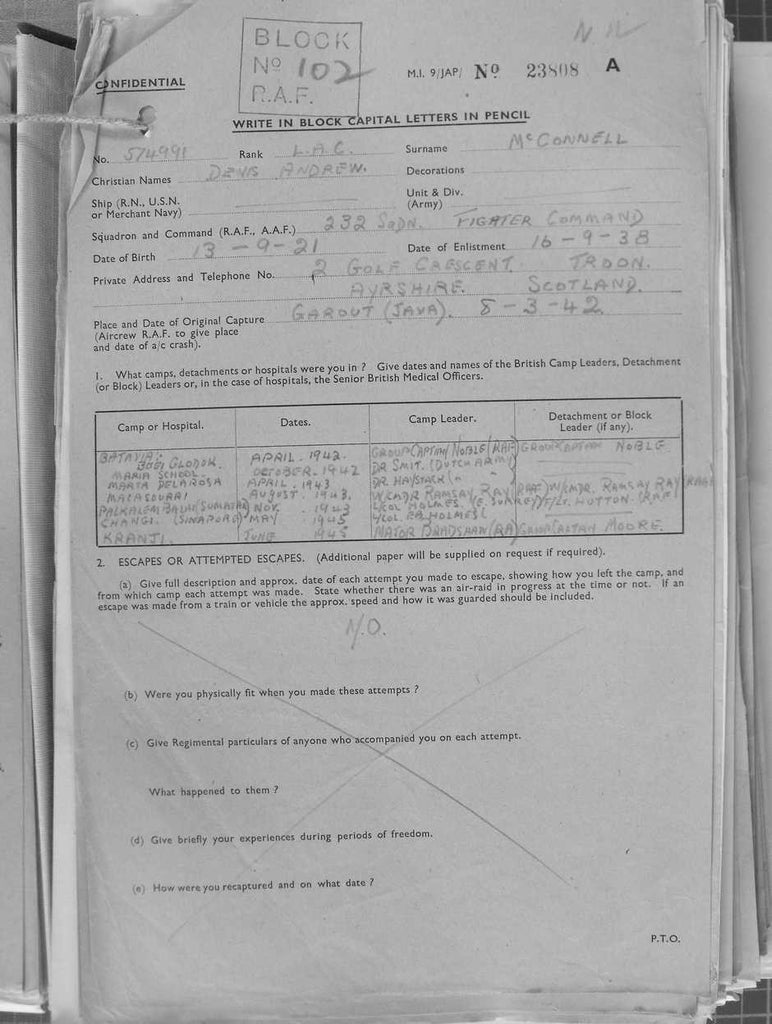 BLOCK
No 102
R.A.F.
CONFIDENTIAL
M.I. 9/JAP/ No 23808 A
WRITE IN BLOCK CAPITAL LETTERS IN PENCIL
No. 574991 Rank L.A.C. Surname McCONNELL
Christian Names DENIS ANDREW. Decorations
Ship (R.N., U.S.N. or Merchant Navy) Unit & Div. (Army)
Squadron and Command (R.A.F., A.A.F.) 232 SQDN. FIGHTER COMMAND
Date of Birth 13-9-21 Date of Enlistment 16-9-38
Private Address and Telephone No. 2 GOLF CRESCENT. TROON.
AYRSHIRE. SCOTLAND.
Place and Date of Original Capture GAROUT (JAVA). 8-3-42
(Aircrew R.A.F. to give place
and date of a/c crash).
1. What camps, detachments or hospitals were you in ? Give dates and names of the British Camp Leaders, Detachment
(or Block) Leaders or, in the case of hospitals, the Senior British Medical Officers.
Camp or Hospital. Dates. Camp Leader. Detachment or Block Leader (if any).
BATAVIA: BOEI GLODOK. APRIL. 1942. GROUP CAPTAIN NOBLE (RAF) GROUP CAPTAIN NOBLE
MARIA SCHOOL. OCTOBER. 1942 DR SMIT. (DUTCH ARMY)
MARTA DELAROSA APRIL. 1943 DR HAYSTACK ( "
MACASOURAI AUGUST. 1943. W/CMDR RAMSAY RAY (RAF) W/CMDR. RAMSAY RAY (RAF)
PALKALEM BALAI (SUMATRA) NOV. 1943 L/COL HOLMES (E. SURREY) F/LT. HUTTON. (RAF)
CHANGI. (SINAPORE) MAY 1945 L/COL. HOLMES (
KRANJI. JUNE 1945 MAJOR BRADSHAW (RA) GROUP CAPTAN MOORE.
2. ESCAPES OR ATTEMPTED ESCAPES. (Additional paper will be supplied on request if required).
(a) Give full description and approx. date of each attempt you made to escape, showing how you left the camp, and
from which camp each attempt was made. State whether there was an air-raid in progress at the time or not. If an
escape was made from a train or vehicle the approx. speed and how it was guarded should be included.
N/O.
(b) Were you physically fit when you made these attempts ?
(c) Give Regimental particulars of anyone who accompanied you on each attempt.
What happened to them ?
(d) Give briefly your experiences during periods of freedom.
(e) How were you recaptured and on what date ?
P.T.O.